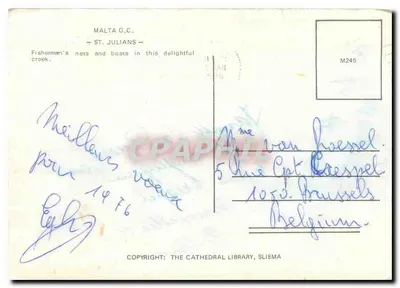 MALTA G.C.
— ST. JULIANS —
Fisherman's nets and boats in this delightful
creek.
M245
Meilleurs voeux
pour 1976
Mme van Roessel.
5 Rue Cpt Crespel
1050. Brussels
Belgium.
CPARAMA
COPYRIGHT: THE CATHEDRAL LIBRARY, SLIEMA